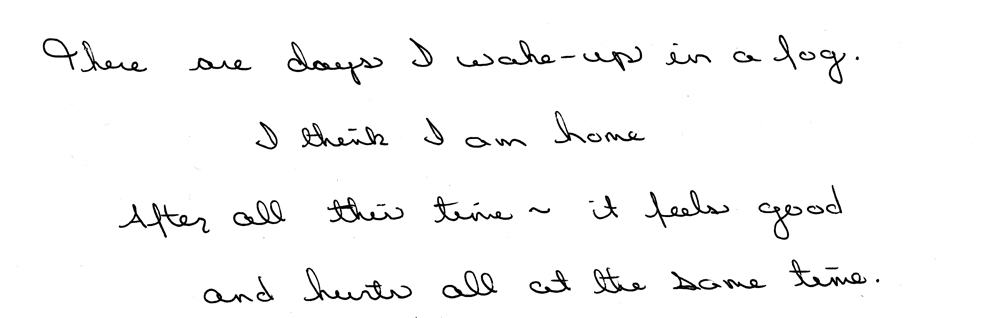 There are days I wake-up in a fog.
I think I am home
After all this time ~ it feels good
and hurts all at the same time.